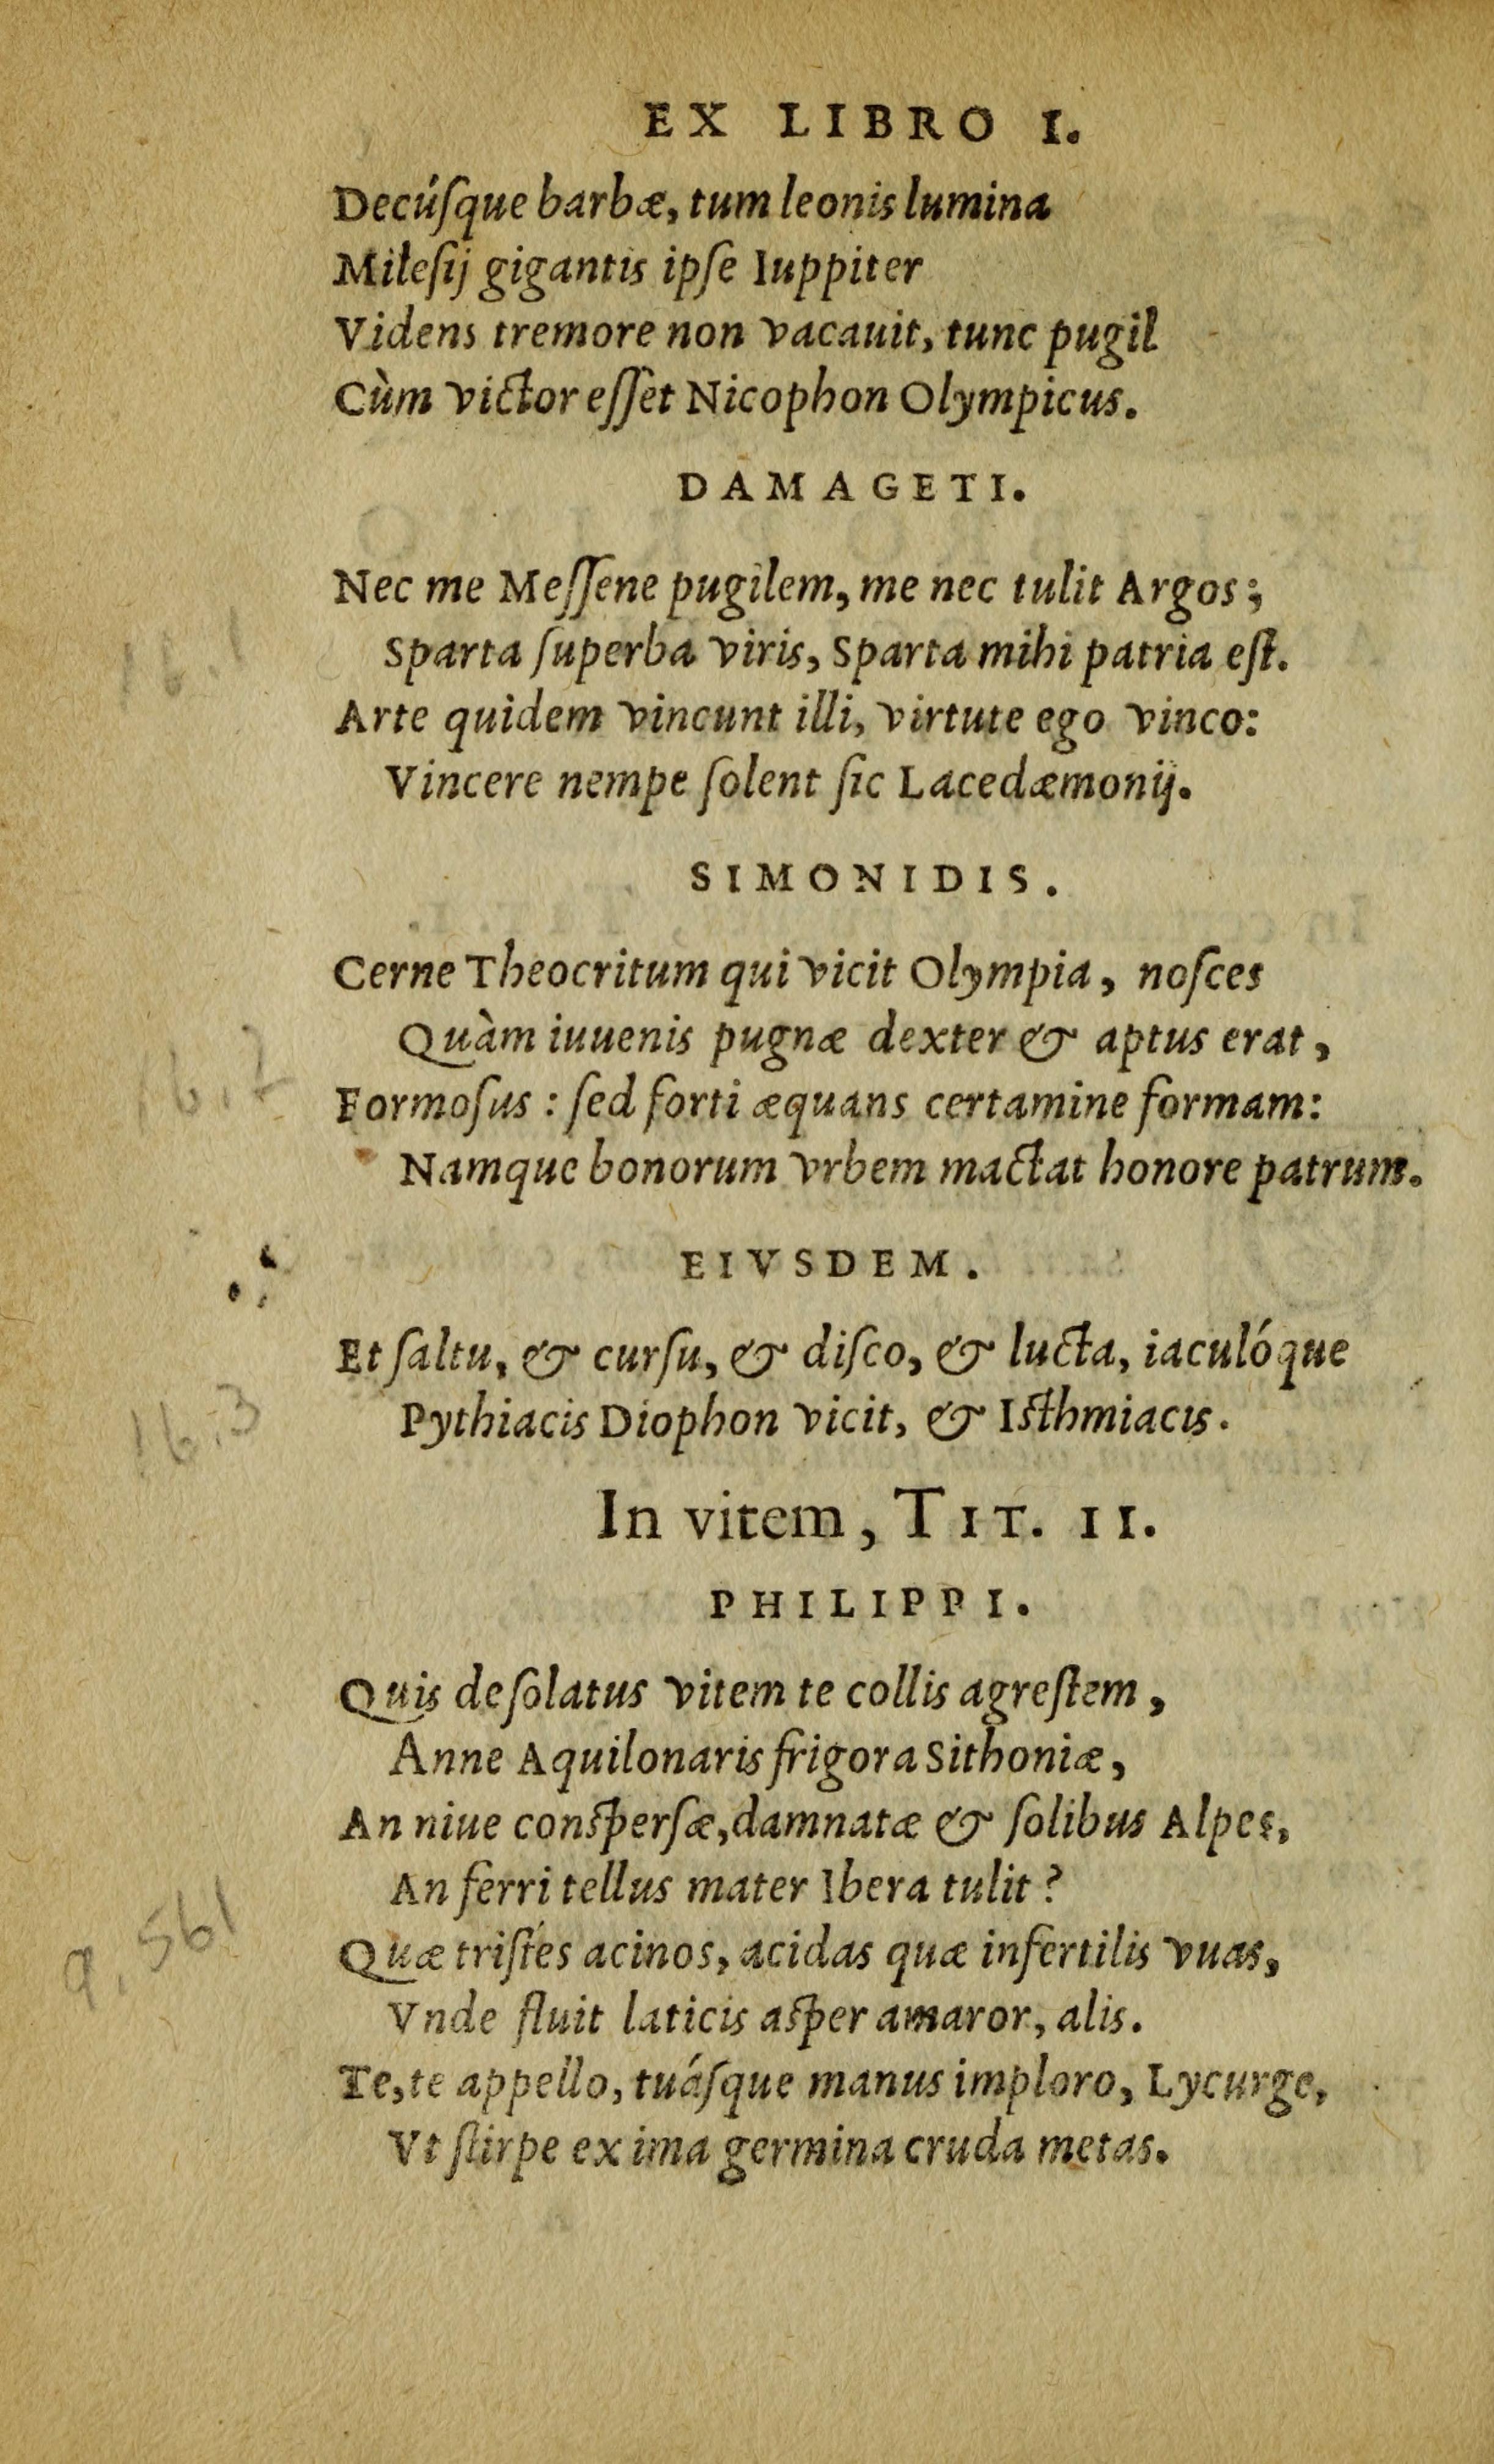 EX LIBRO I.
Decúſque barbæ, tum leonis lumina
Mileſij gigantis ipſe Iuppiter
Videns tremore non vacauit, tunc pugil
Cùm victor eſſet Nicophon Olympicus.
DAMAGETI.
Nec me Meſſene pugilem, me nec tulit Argos;
Sparta ſuperba viris, Sparta mihi patria eſt.
16.1
Arte quidem vincunt illi, virtute ego vinco:
Vincere nempe ſolent ſic Lacedæmonij.
SIMONIDIS.
Cerne Theocritum qui vicit Olympia, noſces
Quàm iuuenis pugnæ dexter & aptus erat,
16.2
Formoſus: ſed forti æquans certamine formam:
Namque bonorum vrbem mactat honore patrum.
EIVSDEM.
Et ſaltu, & curſu, & diſco, & lucta, iaculóque
Pythiacis Diophon vicit, & Iſthmiacis.
16.3
In vitem, TIT. II.
PHILIPPI.
Quis deſolatus vitem te collis agreſtem,
Anne Aquilonaris frigora Sithoniæ,
An niue conſperſæ, damnatæ & ſolibus Alpes,
An ferri tellus mater Ibera tulit?
9.561
Quæ triſtes acinos, acidas quæ infertilis vuas,
Vnde fluit laticis aſper amaror, alis.
Te, te appello, tuáſque manus imploro, Lycurge,
Vt ſtirpe ex ima germina cruda metas.